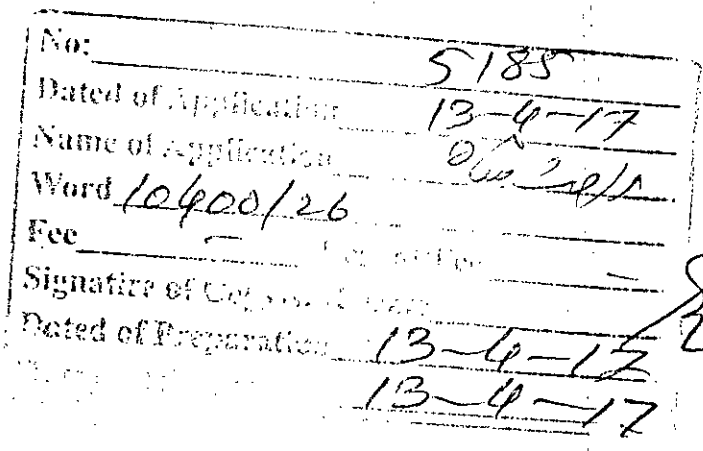 No: 5185
Dated of Application 13-4-17
Name of Application
Word 10400/26
Fee — Fee —
Signatire of
Dated of Preparation 13-4-17
13-4-17